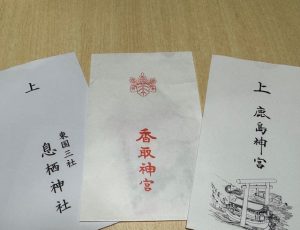 上
東国三社
息栖神社
香取神宮
上
鹿島神宮